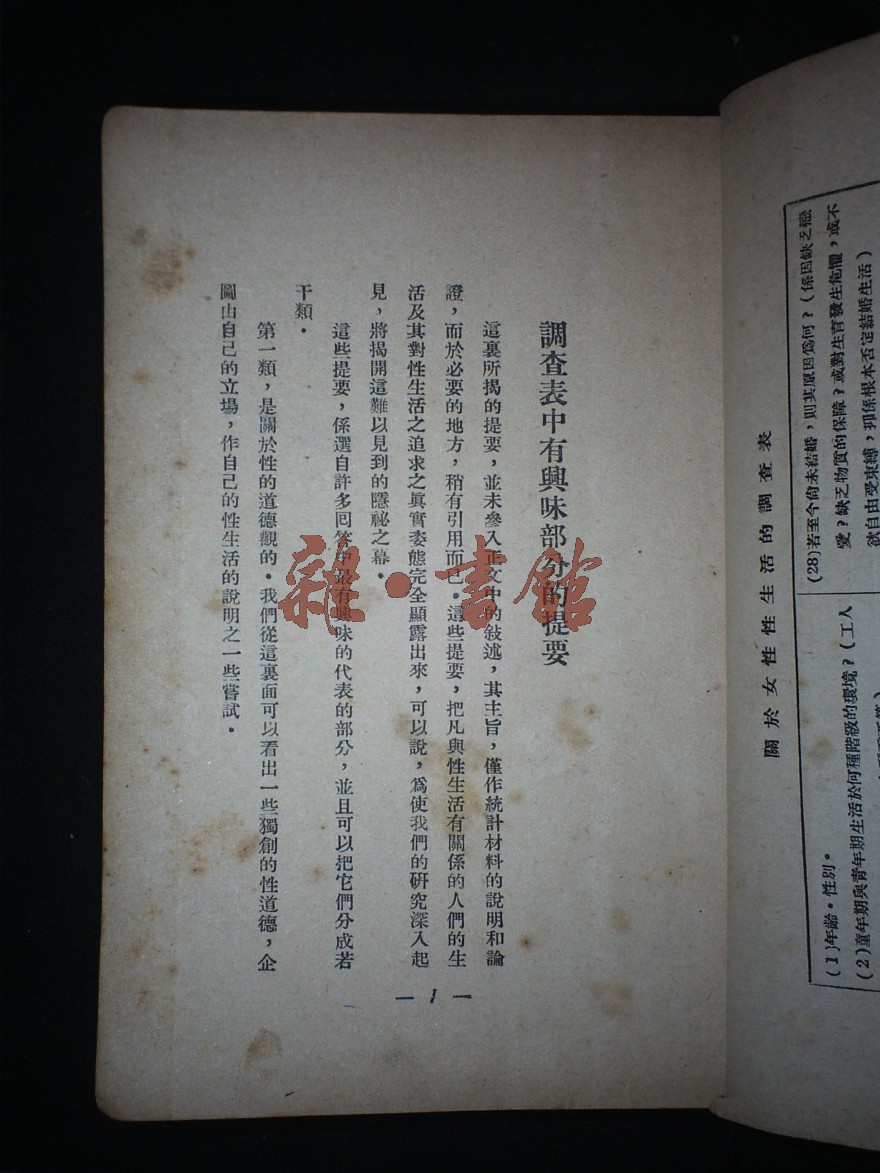 關於女性性生活的調查表
(28)若至今尙未結婚，則其原因爲何？(係因缺乏戀
愛？缺乏物質的保障？或對生育發生危懼，或不
欲自由受束縛，抑係根本否定結婚生活)
(1)年齡・性別。
(2)童年期與靑年期生活於何種階級的環境？(工人
調查表中有興味部分的提要
這裏所揭的提要，並未參入正文中的敍述，其主旨，僅作統計材料的說明和論
證，而於必要的地方，稍有引用而已。這些提要，把凡與性生活有關係的人們的生
活及其對性生活之追求之眞實姿態完全顯露出來，可以說，爲使我們的硏究深入起
見，將揭開這難以見到的隱祕之幕。
這些提要，係選自許多囘答中最有興味的代表的部分，並且可以把它們分成若
干類。
第一類，是關於性的道德觀的。我們從這裏面可以看出一些獨創的性道德，企
圖由自己的立場，作自己的性生活的說明之一些嘗試。
— 1 —
雜・書館